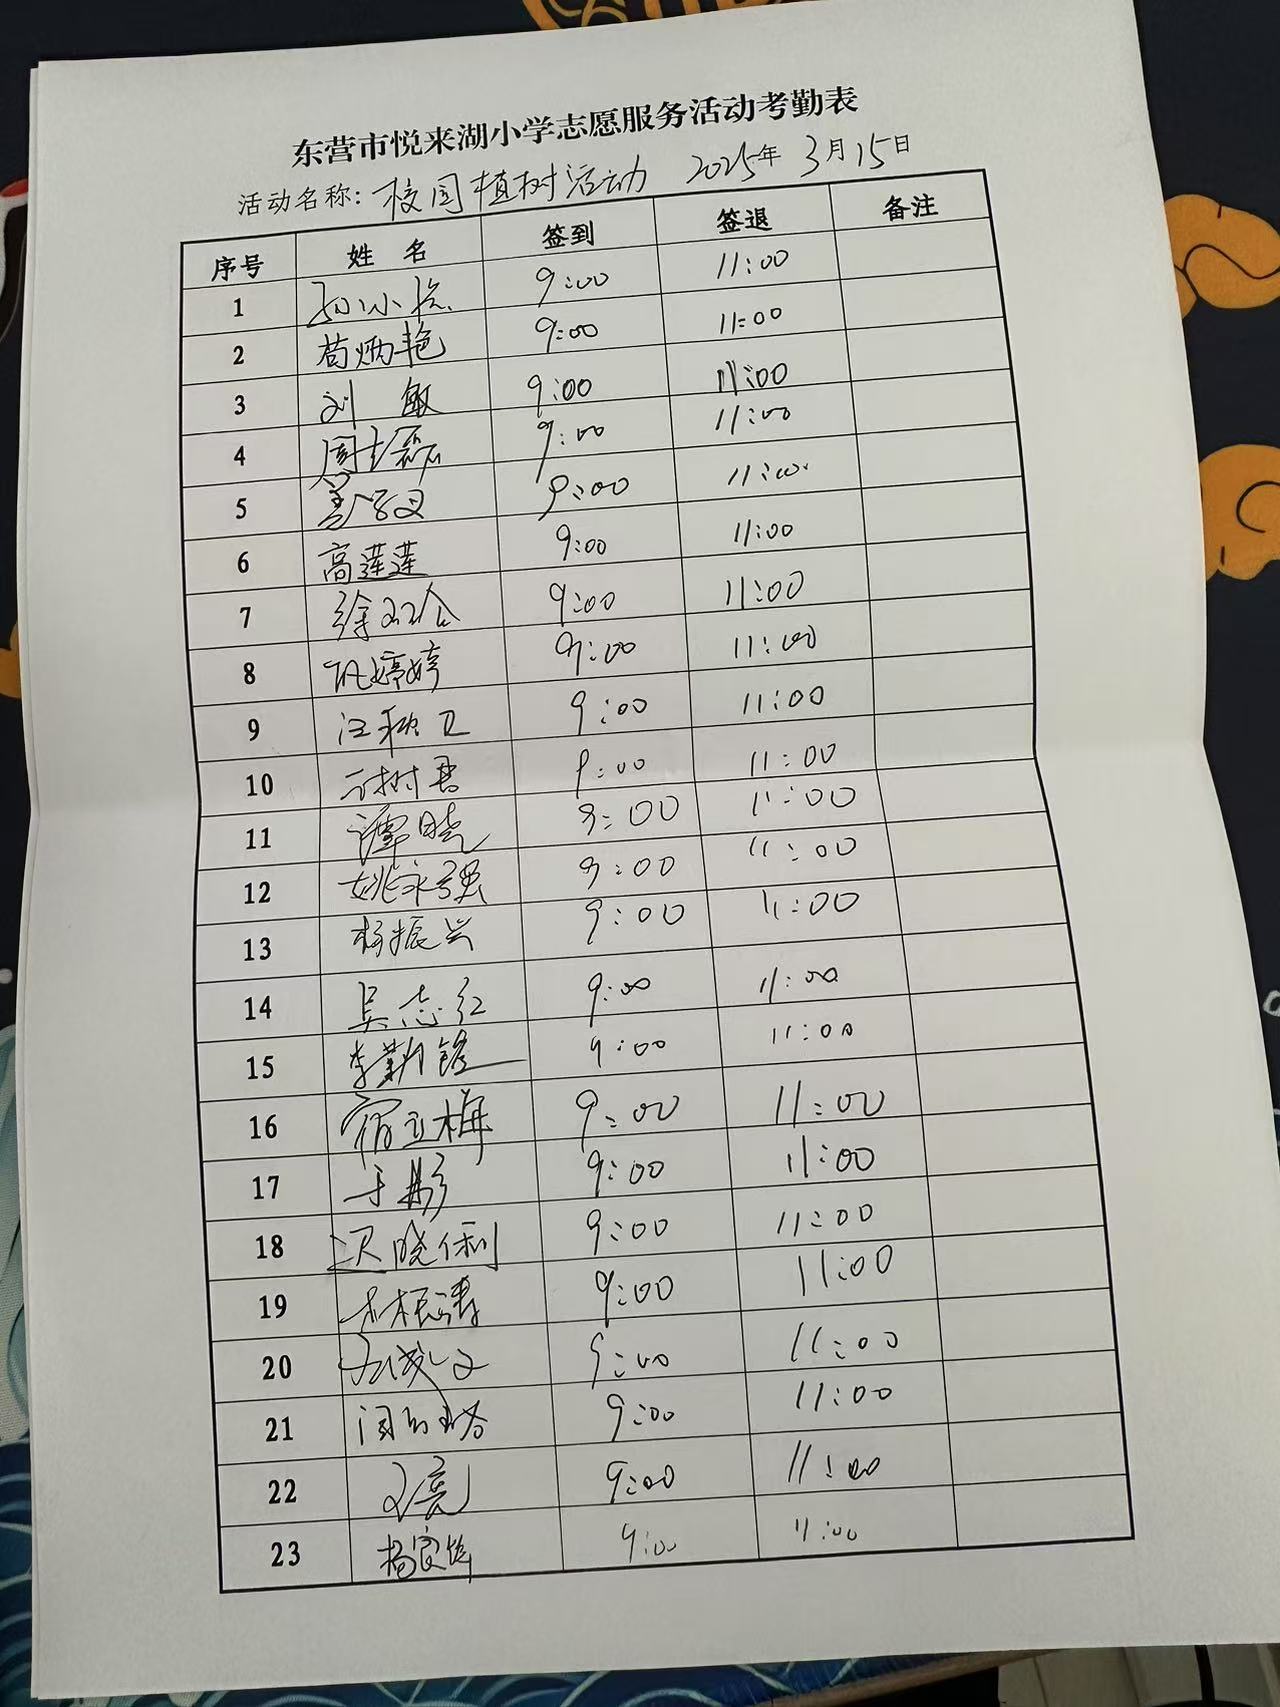 东营市悦来湖小学志愿服务活动考勤表
活动名称：校园植树活动 2025年 3月15日
序号 姓 名 签到 签退 备注
1 9:00 11:00
2 苟炳艳 9:00 11:00
3 刘 敏 9:00 11:00
4 周 磊 9:00 11:00
5 9:00 11:00
6 高莲莲 9:00 11:00
7 徐 9:00 11:00
8 婷婷 9:00 11:00
9 9:00 11:00
10 树 9:00 11:00
11 谭晓 9:00 11:00
12 姚永强 9:00 11:00
13 杨振兴 9:00 11:00
14 吴志红 9:00 11:00
15 李 9:00 11:00
16 宿立梅 9:00 11:00
17 于彬 9:00 11:00
18 晓利 9:00 11:00
19 9:00 11:00
20 9:00 11:00
21 9:00 11:00
22 亮 9:00 11:00
23 杨 9:00 11:00